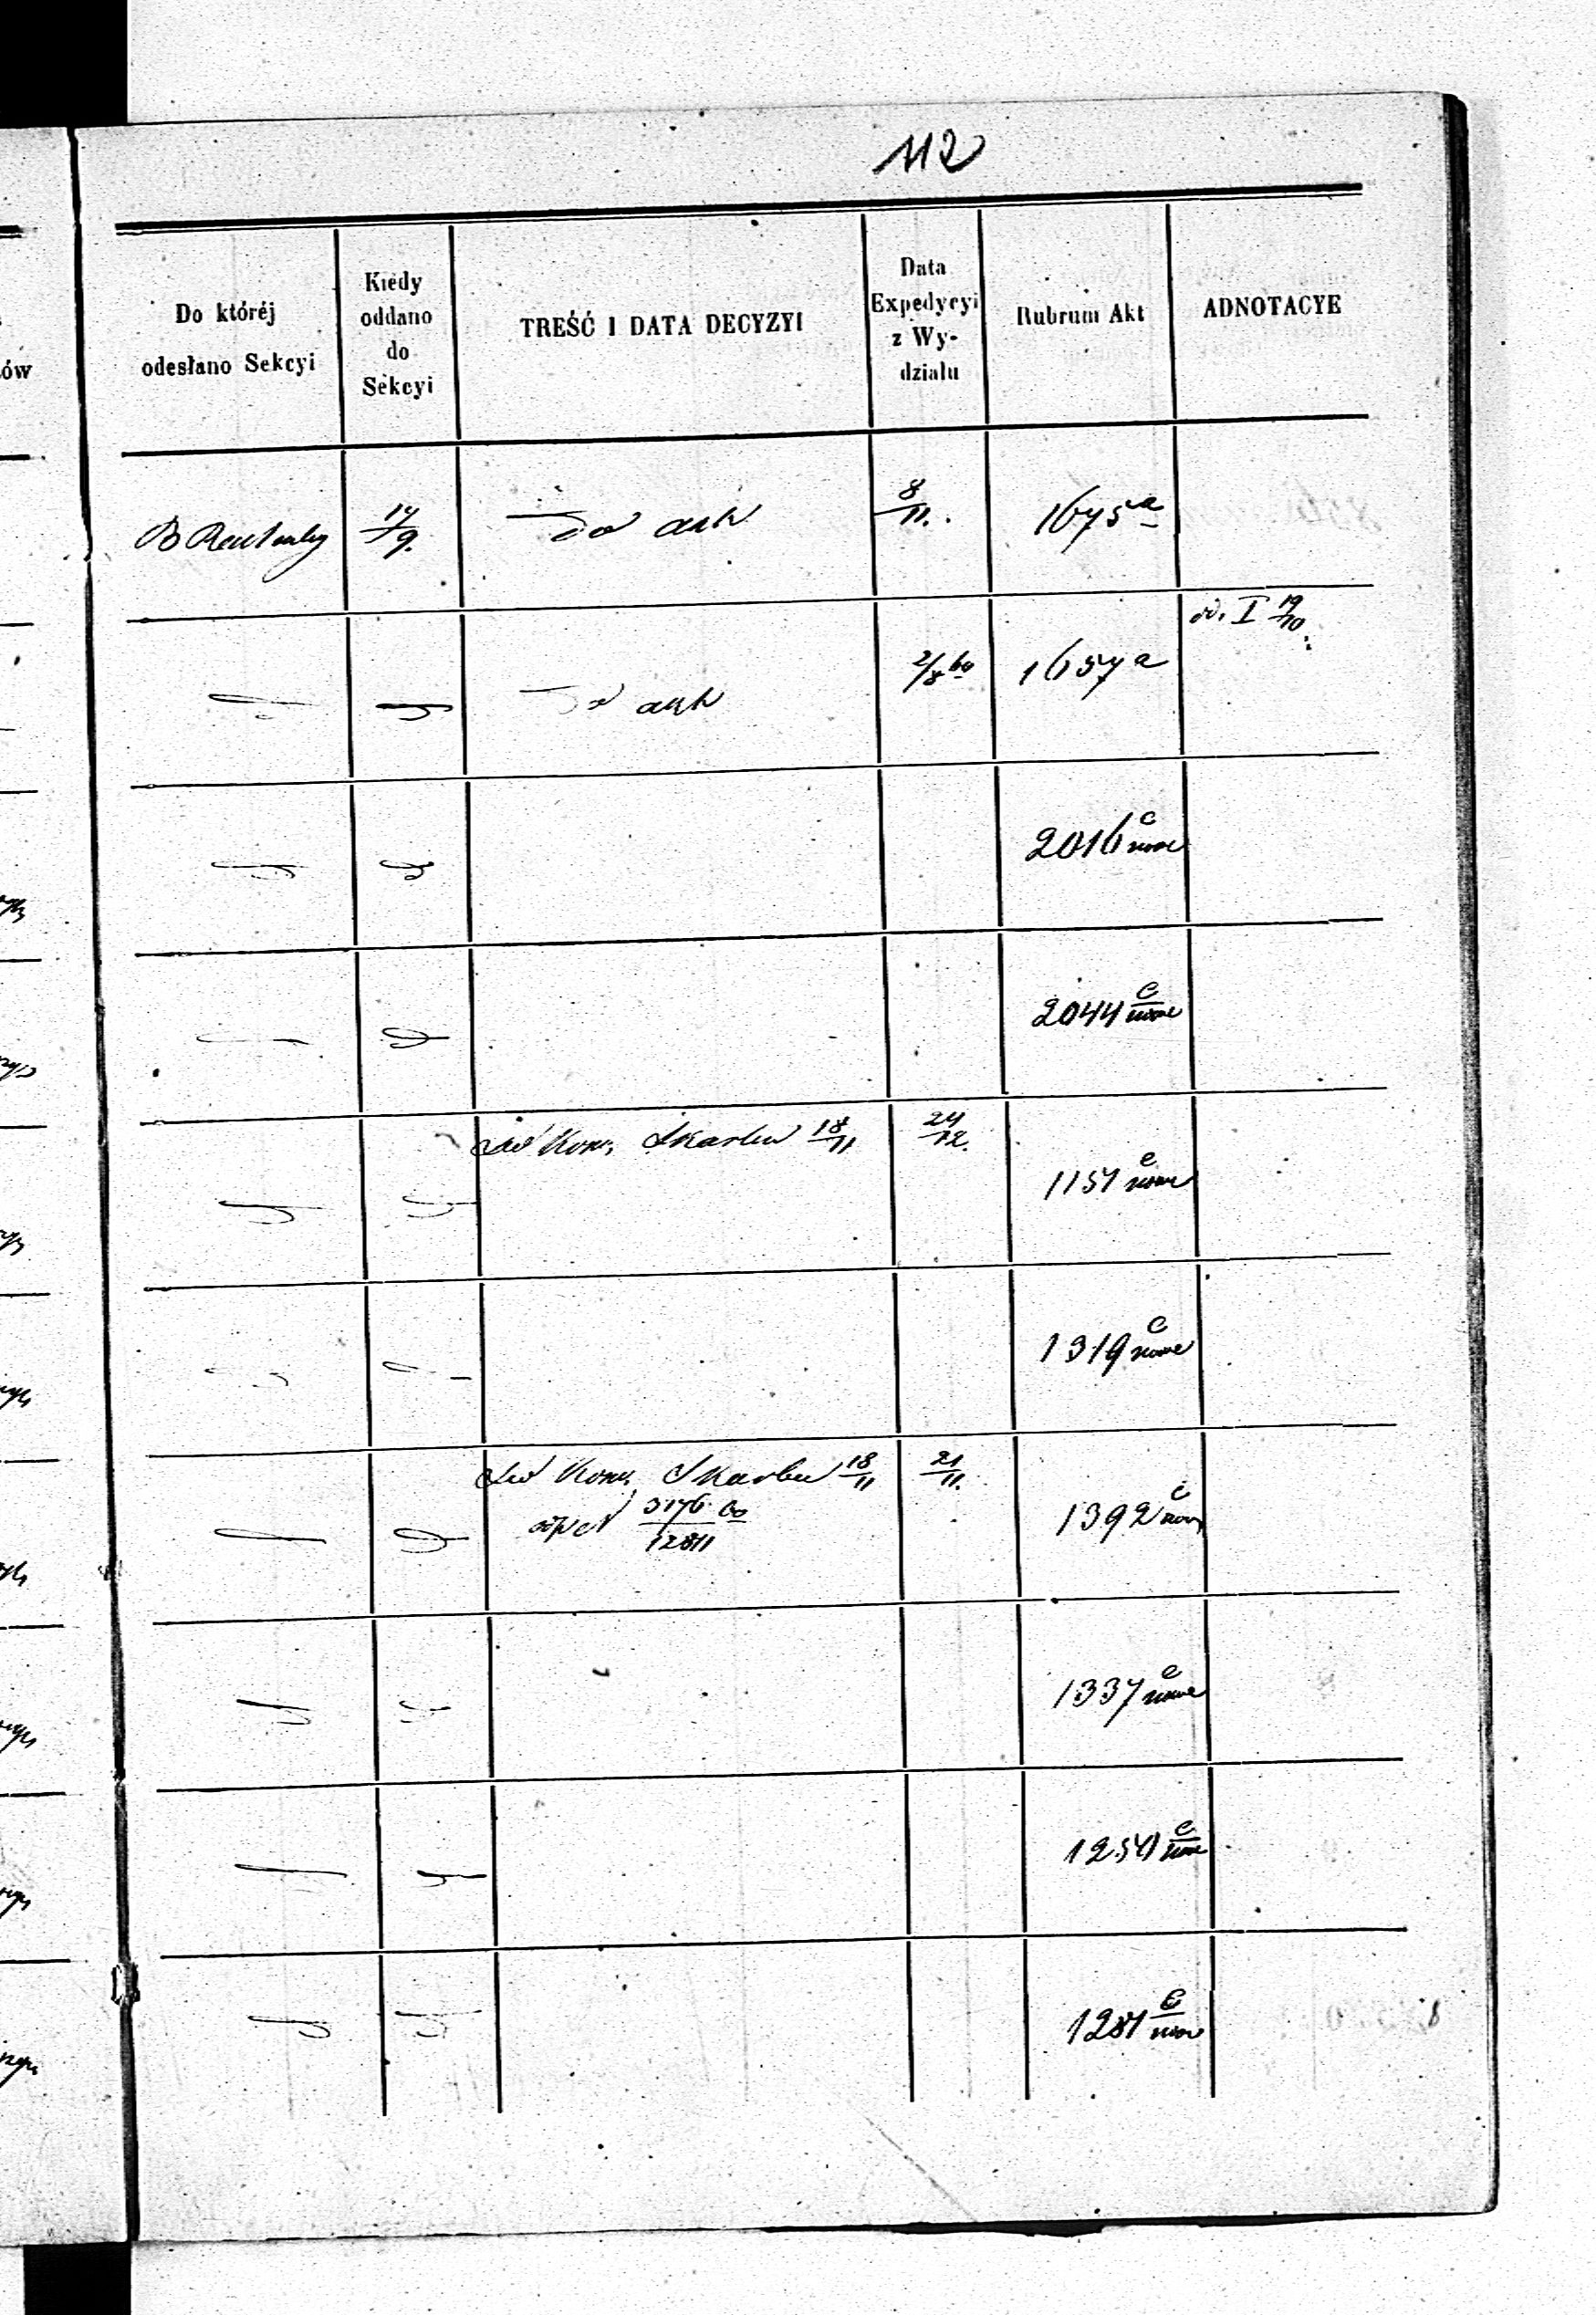 112
Do któréj
odesłano Sekcyi
Kiedy
oddano
do
Sekcyi
TREŚĆ I DATA DECYZYI
Data
Expedycyi
z Wy-
działu
Rubrum Akt
ADNOTACYE
ów
B
Do akt
8/11.
1675 a
I 19/10
2/8 60
1657 a
Do akt
2016 c nowe
2044 c nowe
Do Kom. Skarbu 18/11
24/12.
1151 c nowe
1319 c nowe
Do Kom. Skarbu 18/11
21/11.
3176 60/12811
1392 c now
1337 c nowe
1251 c nowe
1281 c nowe